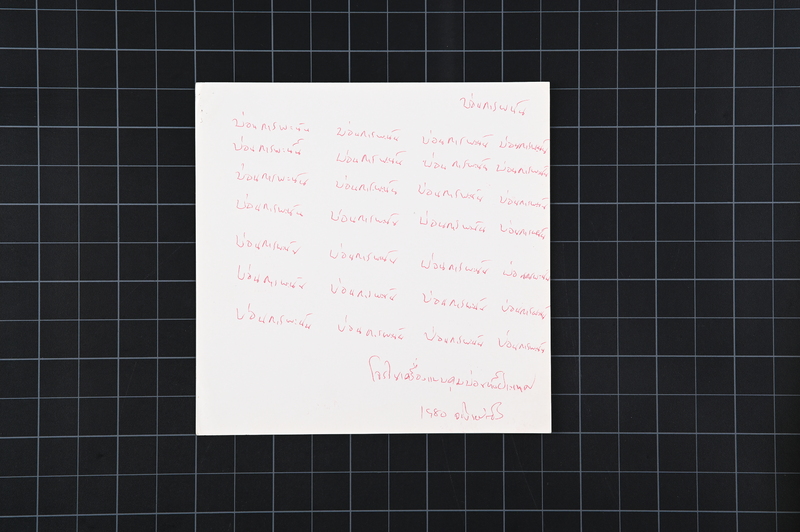 บ่อนการพนัน
บ่อนการพะนัน บ่อนการพนัน บ่อนการพนัน บ่อนการพนัน
บ่อนการพะนัน บ่อนการพนัน บ่อนการพนัน บ่อนการพนัน
บ่อนการพะนัน บ่อนการพนัน บ่อนการพนัน บ่อนการพนัน
บ่อนการพนัน บ่อนการพนัน บ่อนการพนัน บ่อนการพนัน
บ่อนการพนัน บ่อนการพนัน บ่อนการพนัน บ่อนการพนัน
บ่อนการพนัน บ่อนการพนัน บ่อนการพนัน บ่อนการพนัน
บ่อนการพะนัน บ่อนการพนัน บ่อนการพนัน บ่อนการพนัน
1980